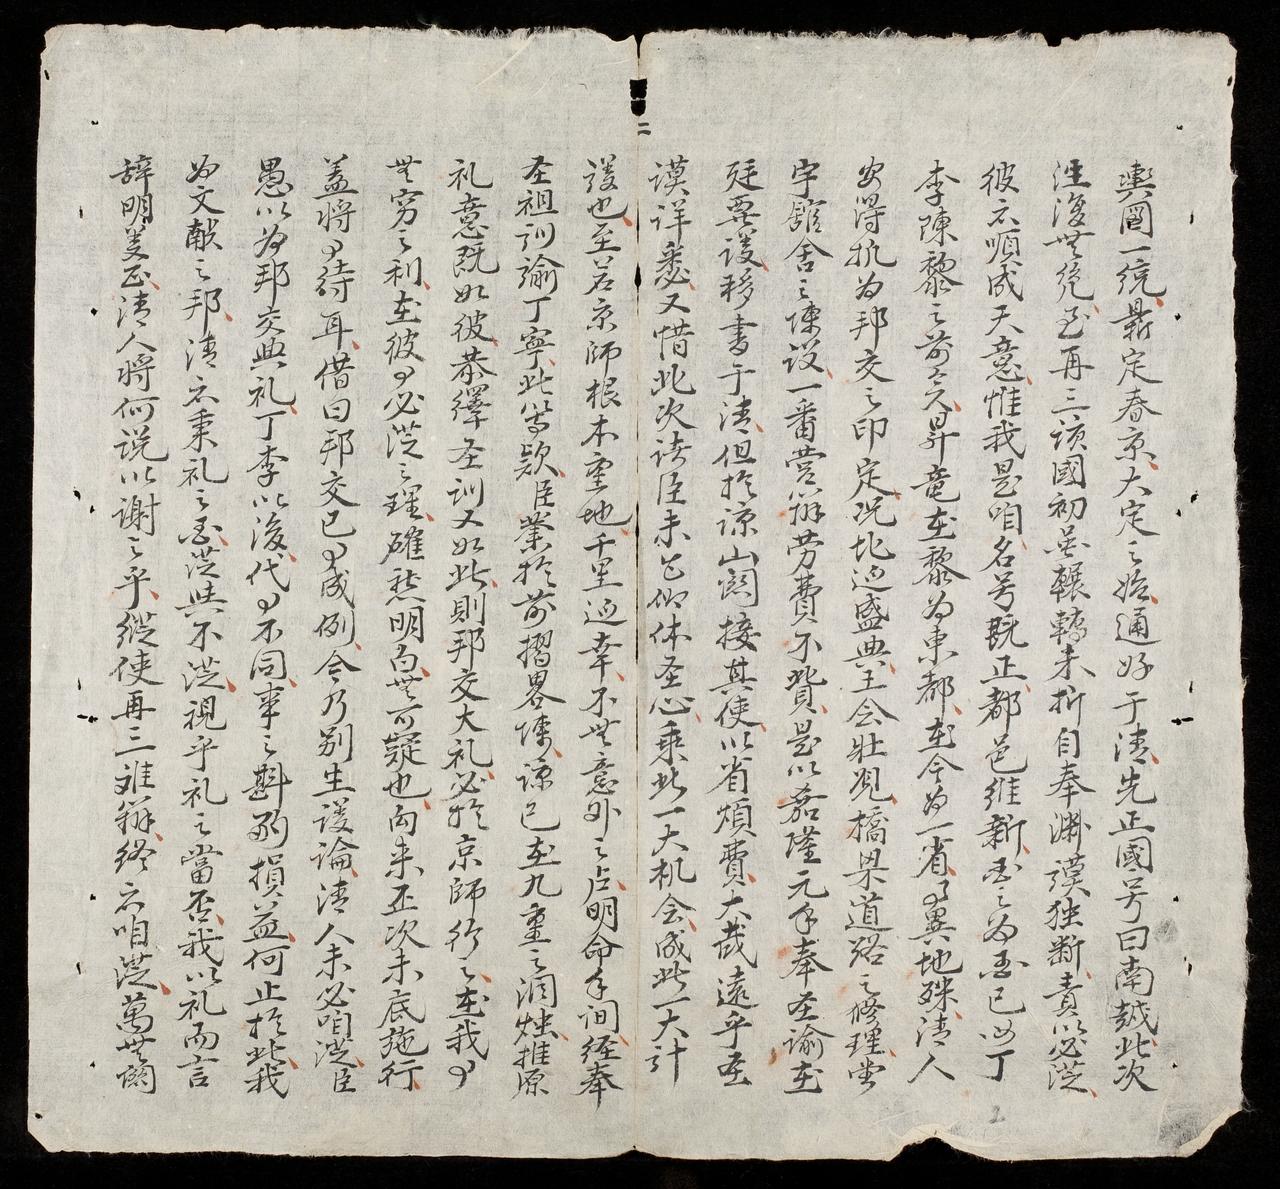 二
輿圖一統鼎定春京大定之始通好于清先正國号曰南越此次
徃復無慮至再三頃國初並輾轉未折自奉淵謨独断責以必從
彼亦順成天意惟我是咱名号既正都邑維新國之為國已與丁
李陳黎之前矣昇竜在黎為東都在今為一省事異地殊清人
安得執為邦交之印定况北迎盛典王会壮观橋梁道路之修理堂
宇舘舍之陳設一番営办勞費不貲是以嘉隆元年奉圣諭在
廷粟議移書于清但於諒山関接其使以省煩費大哉遠乎圣
謨詳悉又惜此次诸臣未乞仰体圣心乘此一大机会成此一大計
議也至若京師根本重地千里迎幸不無意外之占明命年间経奉
圣祖訓諭丁寧此等欵臣業於前摺畧陳諒已在九重之洞燭推原
礼意既如彼恭繹圣訓又如此則邦交大礼必於京師行之在我事
無穷之利在彼事必從之理確然明白無可疑也向来丕次未底施行
盖将事待耳借曰邦交已事成例今乃别生議論清人未必咱從臣
愚以為邦交典礼丁李以後代事不同事之斟酌損益何止於此我
為文献之邦清亦秉礼之國從與不從視乎礼之當否我以礼而言
辞明义正清人将何說以謝之乎縱使再三难辩終亦咱從萬無個
2